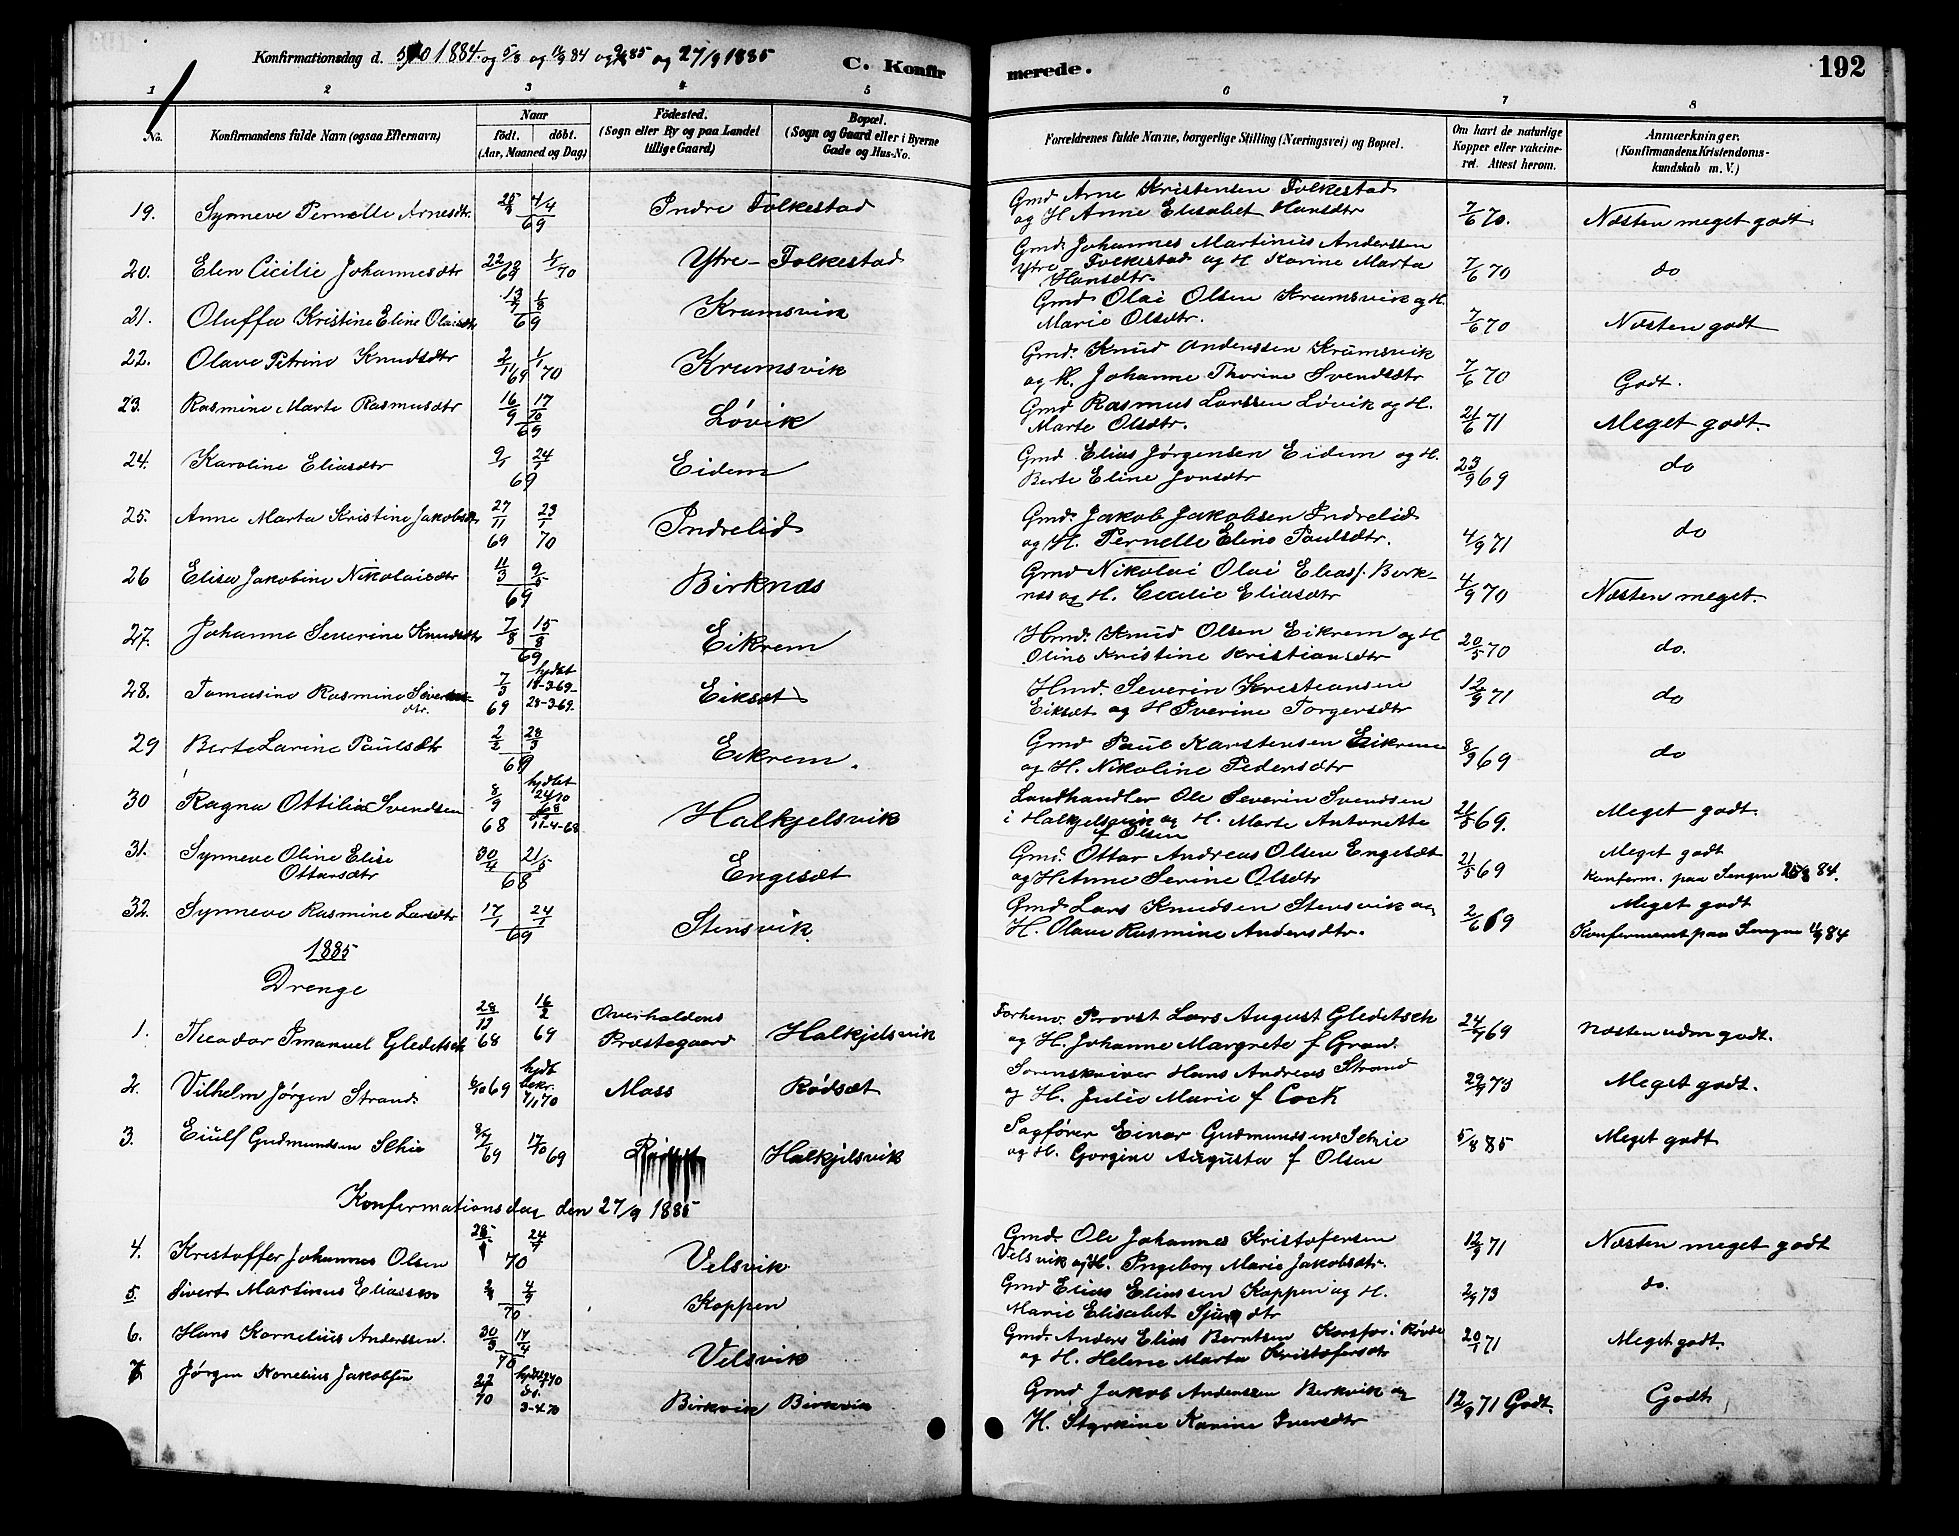 Konfirmationsdag d. 5/10 1884. og 5/8 og 11/9 84 og 85 og 27/9 1885
C. Konfirmerede.
192
1 2 3 4 5 6 7 8
No.
Konfirmandens fulde Navn (ogsaa Efternavn)
Naar
født. døbt.
(Aar, Maaned og Dag)
Fødested.
(Sogn eller By og paa Landet
tillige Gaard)
Bopæl.
(Sogn og Gaard eller i Byerne
Gade og Hus-No.
Forældrenes fulde Navne, borgerlige Stilling (Næringsvei) og Bopæl.
Om havt de naturlige
Kopper eller vakcine-
ret. Attest herom.
Anmærkninger.
(Konfirmandens Kristendoms-
kundskab m. V.)
19. Synneve Pernelle Arnesdtr. 4/4 69 Indre Folkestad Gmd Arne Kristensen Folkestad
og H Anne Elisabet Hansdtr 7/6 70. Næsten meget godt
20. Elen Cicilie Johannesdtr 22/12 69 1/1 70 Ytre-Folkestad Gmd. Johannes Martinus Anderssen
Ytre Folkestad og H Karine Marta
Hansdtr. 7/6 70 do
21. Oluffa Kristine Eline Olaisdtr 13/7 1/8 69 Krumsvik Gmd Olai Olsen Krumsvik og H.
Marie Olsdtr. 7/6 70 Næsten godt
22. Olave Petrine Knudsdtr 2/11 69 1/1 70 Krumsvik Gmd. Knud Anderssen Krumsvik
og H. Johanne Thorine Svendsdtr 7/6 70 Godt.
23. Rasmine Marte Rasmusdtr 16/9 17/10 69 Løvik Gmd Rasmus Larssen Løvik og H.
Marte Olsdtr. 21/6 71 Meget godt.
24. Karoline Eliasdtr 9/1 24/1 69 Eidem Gmd. Elias Jørgensen Eidem og H.
Berte Eline Jonsdtr 23/9 69 do
25. Anne Marta Kristine Jakobsdtr 27/11 69 23/1 70 Indrelid Gmd. Jakob Jakobsen Indrelid
og H. Pernelle Eline Paulsdtr. 4/9 71 do
26 Elisa Jakobine Nikolaisdtr 11/3 9/5 69 Birknæs Gmd Nikolai Olai Eliass. Berk-
næs og H. Cecilie Eliasdtr 4/9 70 Næsten meget.
27. Johanne Severine Knudsdtr 7/8 15/8 69 Eikrem Hmd. Knud Olsen Eikrem og H
Oline Kristine Kristiansdtr 20/5 70 do.
28. Tomasine Rasmine Severins-
dtr. 7/3 69 hjdøt
18-3-69-
28-3-69. Eiksæt Hmd. Severin Kristiansen
Eiksæt og H Severine Torgersdtr 12/9 71 do
29 Berte Larine Paulsdtr 2/2 28/3 69 Eikrem. Gmd Paul Karstensen Eikrem
og H. Nikoline Pedersdtr 8/9 69 do
30 Ragna Ottilia Svendsen 8/9 68 hjdøbt
24/10
68 Halkjelsvik Landhandler Ole Severin Svendsen
i Halkjelsvik og H. Marte Antonette
f Olsen 21/5 69. Meget godt.
31. Synneve Oline Elise
Ottarsdtr 30/4 21/5 68 Engesæt Gmd. Ottar Andreas Olsen Engesæt
og H Anne Serine Olsdtr 21/5 69 Meget godt
Konferm. paa Sengen 84.
32. Synneve Rasmine Larsdtr 17/1 24/1 69 Stensvik Gmd Lars Knudsen Stensvik og
H. Olave Rasmine Andersdtr. 2/6 69 Meget godt
Konfermeret paa Sengen 11/9 84
1885
Drenge
1. Theodor Imanuel Gleditsch 28/12 68 16/2 69 Overhaldens
Præstegaard Halkjelsvik Forhenv. Provst Lars August Gleditsch
og H. Johanne Margrete f Grau. 24/7 69 næsten udm godt.
2. Vilhelm Jørgen Strand. 6/10 69 hjdt
bekr.
1/1 70 Moss Rødsæt Sorenskriver Hans Andreas Strand
og H. Julie Marie f Cock 29/9 73 Meget godt.
3. Eiulf Gudmundsen Schie 8/7 69 17/10 69 Rødset Halkjelsvik Sagfører Einar Gudmundsen Schie
og H. Gorgine Augusta f Olsen 5/8 85 Meget godt
Konfermationsdag den 27/9 1885
4. Kristoffer Johannes Olsen 24/7 70 Velsvik Gmd. Ole Johannes Kristofersen
Velsvik og H. Ingeborg Marie Jakobsdtr. 12/9 71 Næsten meget godt
5. Sivert Martinus Eliassen 4/9 70 Koppen Gmd Elias Eliassen Koppen og H.
Marie Elisabet Sjurdtr 2/9 73 do.
6. Hans Kornelius Anderssen. 30/3 17/4 70 Velsvik Gmd. Anders Elias Berntsen
og H. Helene Marta Kristofersdtr 20/1 71 Meget godt.
7 Jørgen Kornelius Jakobsen 22/1 70 3-4-70 Birkvik Birkvik Gmd Jakob Anderssen Berkvik og
H. Styrkine Karine Iversdtr 12/9 71 Godt. Godt